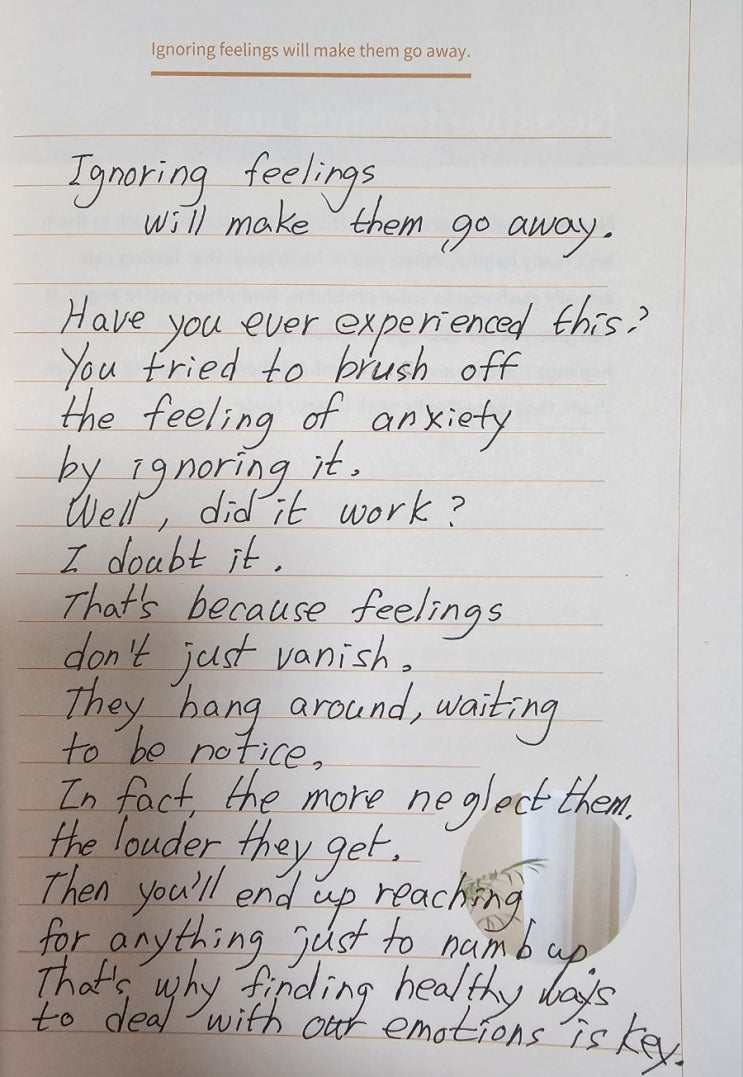 Ignoring feelings will make them go away.
Ignoring feelings
will make them go away.
Have you ever experienced this?
You tried to brush off
the feeling of anxiety
by ignoring it.
Well, did it work?
I doubt it.
That's because feelings
don't just vanish.
They hang around, waiting
to be notice,
In fact, the more neglect them.
the louder they get.
Then you'll end up reaching
for anything just to numb up.
That's why finding healthy ways
to deal with our emotions is key.